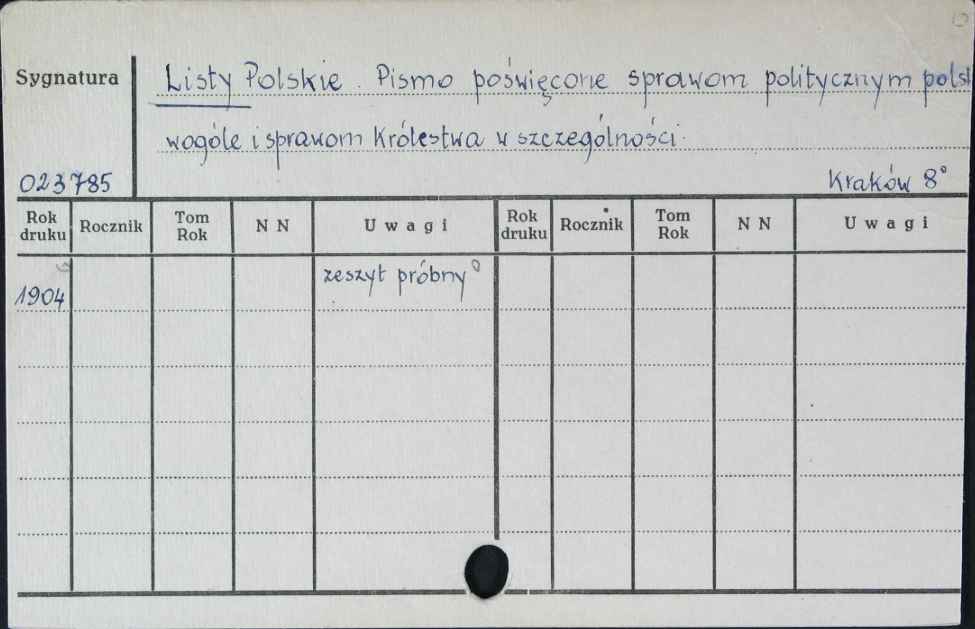 Sygnatura
Listy Polskie. Pismo poświęcone sprawom politycznym polsk
wogóle i sprawom Królestwa w szczególności.
023785
Kraków 8°
Rok druku Rocznik Tom Rok N N Uwagi Rok druku Rocznik Tom Rok N N Uwagi
1904 zeszyt próbny